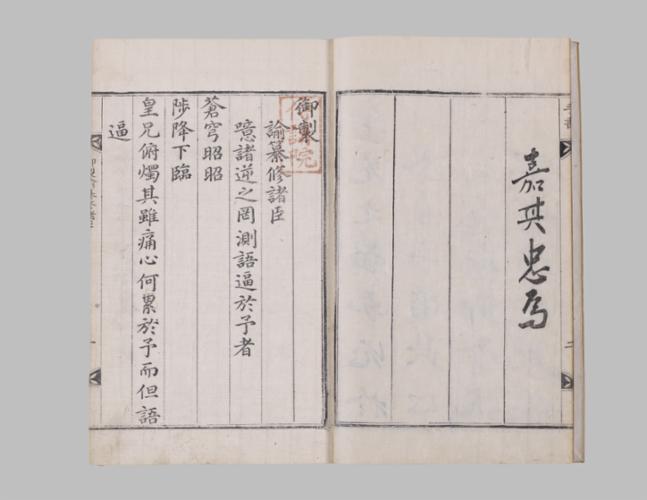 嘉其忠焉
御製
諭纂修諸臣
噫諸逆之罔測語逼於予者
蒼穹昭昭
陟降下臨
皇兄俯燭其雖痛心何累於予而但語
逼